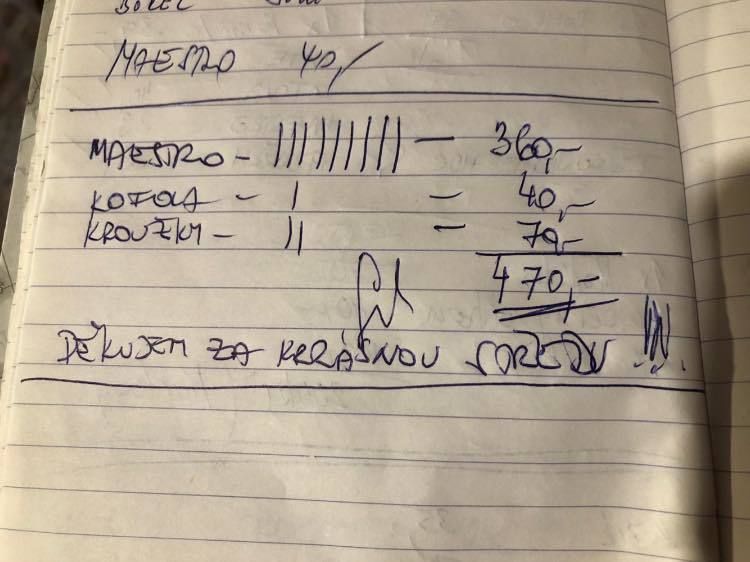 MAESTRO 40,-
MAESTRO - ||||||||| - 360,-
KOFOLA - | - 40,-
KROUŽKY - || - 70,-
470,-
DĚKUJEM ZA KRÁSNOU STŘEDU !!!